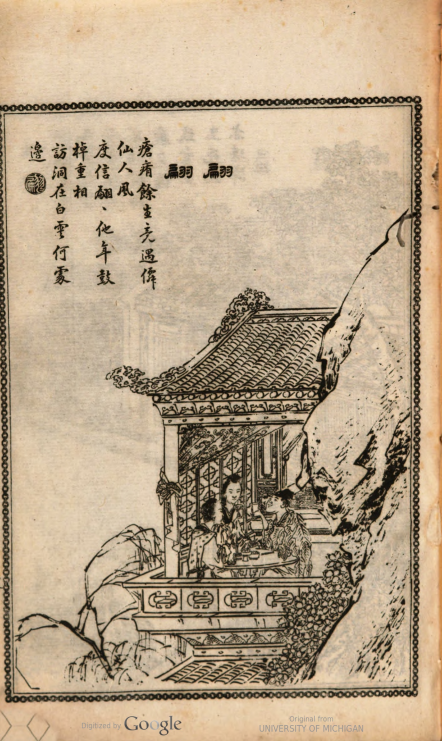 翩翩
瘡痏餘生竟遇
仙人風
度信翩〻他年鼓
棹重相
訪洞在白雲何處
邊
Digitized by Google
Original from
UNIVERSITY OF MICHIGAN